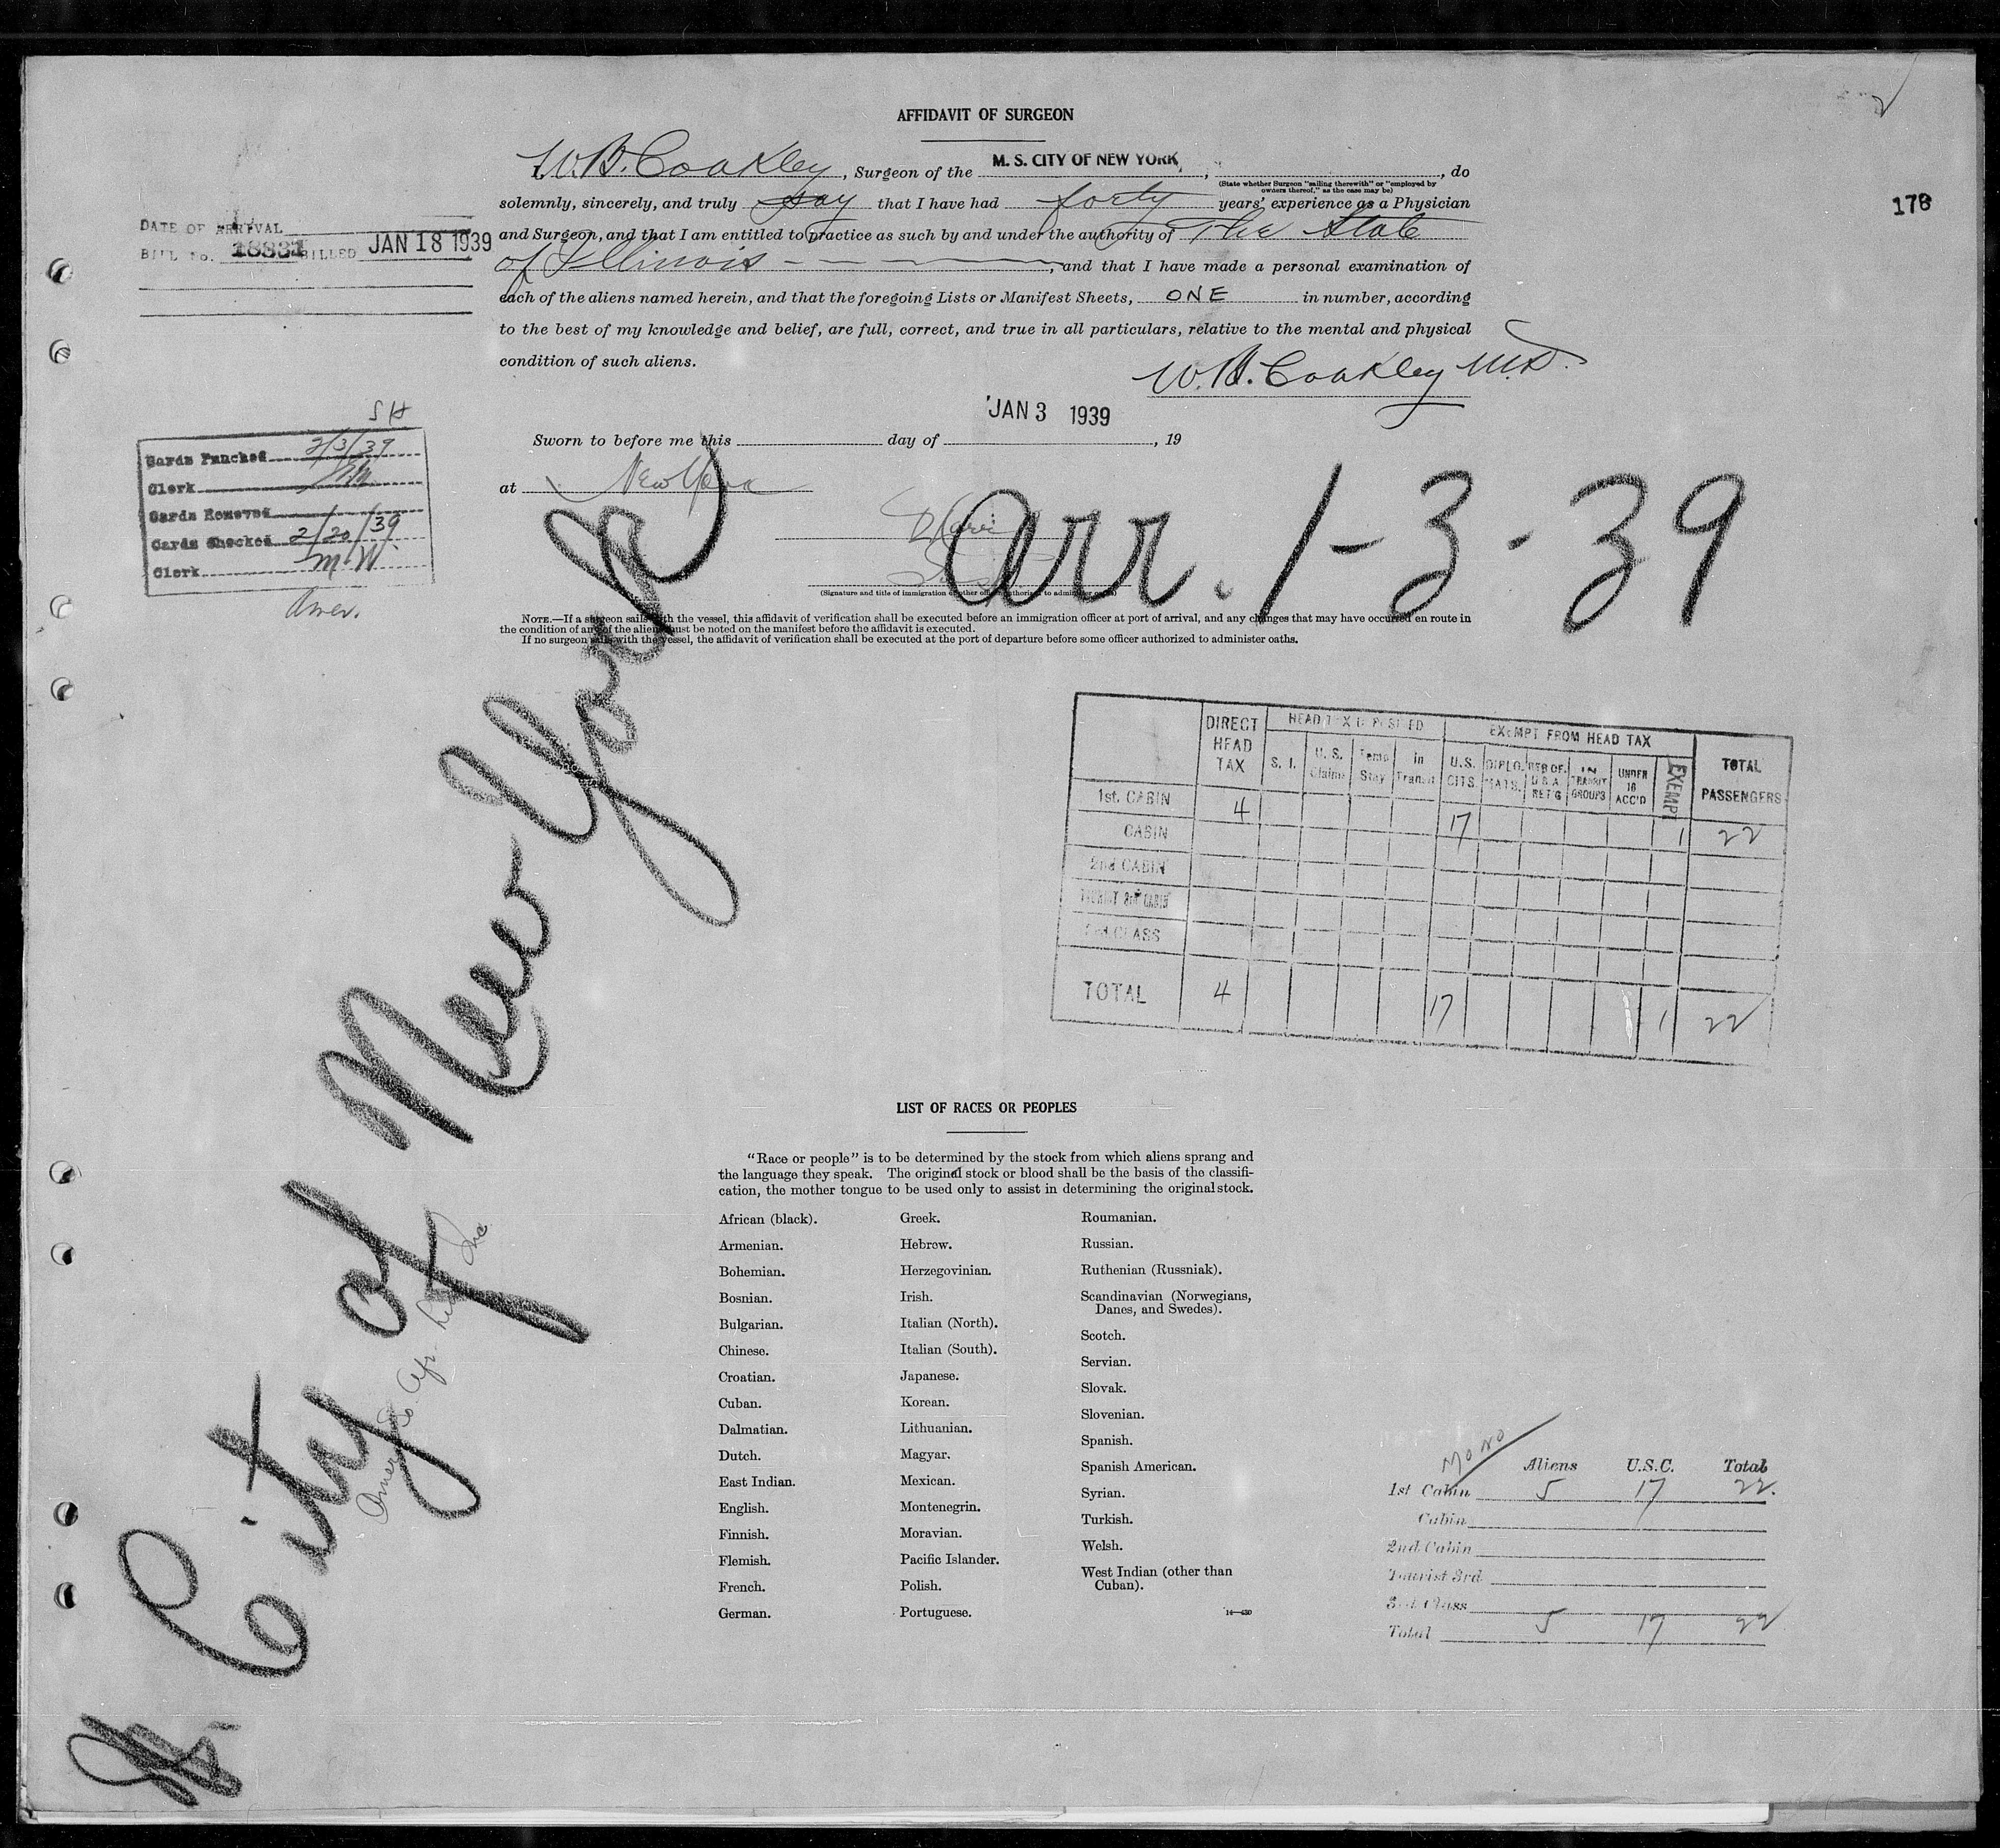 AFFIDAVIT OF SURGEON
178
I, W. B. Coakley, Surgeon of the M. S. CITY OF NEW YORK, , do
(State whether Surgeon "sailing therewith" or "employed by
owners thereof," as the case may be)
solemnly, sincerely, and truly say that I have had forty years' experience as a Physician
and Surgeon, and that I am entitled to practice as such by and under the authority of The State
of Illinois, and that I have made a personal examination of
each of the aliens named herein, and that the foregoing Lists or Manifest Sheets, ONE in number, according
to the best of my knowledge and belief, are full, correct, and true in all particulars, relative to the mental and physical
condition of such aliens.
W. B. Coakley M.D.
DATE OF ARRIVAL
BILL No. 18831 BILLED JAN 18 1939
JAN 3 1939
Sworn to before me this day of , 19
at New York
SH
Cards Punched 2/3/39
Clerk
Cards Removed
Cards Checked 2/20/39
Clerk M.W.
Amer.
arr. 1-3-39
(Signature and title of immigration or other officer authorized to administer oaths)
NOTE.—If a surgeon sails with the vessel, this affidavit of verification shall be executed before an immigration officer at port of arrival, and any changes that may have occurred en route in
the condition of any of the aliens must be noted on the manifest before the affidavit is executed.
If no surgeon sails with the vessel, the affidavit of verification shall be executed at the port of departure before some officer authorized to administer oaths.
City of New York
DIRECT HEAD TAX
HEAD TAX DEPOSITED
EXEMPT FROM HEAD TAX
TOTAL PASSENGERS
S. I.
U. S. Claims
Temp Stay
in Transit
U.S. CITS.
DIPLOMATS.
RES OF U S A RET'G
IN TRANSIT GROUPS
UNDER 16 ACC'D
EXEMPT
1st. CABIN 4 17 1 22
CABIN
2nd CABIN
TOURIST 3rd CABIN
3rd CLASS
TOTAL 4 17 1 22
LIST OF RACES OR PEOPLES
"Race or people" is to be determined by the stock from which aliens sprang and
the language they speak. The original stock or blood shall be the basis of the classifi-
cation, the mother tongue to be used only to assist in determining the original stock.
African (black).
Armenian.
Bohemian.
Bosnian.
Bulgarian.
Chinese.
Croatian.
Cuban.
Dalmatian.
Dutch.
East Indian.
English.
Finnish.
Flemish.
French.
German.
Greek.
Hebrew.
Herzegovinian.
Irish.
Italian (North).
Italian (South).
Japanese.
Korean.
Lithuanian.
Magyar.
Mexican.
Montenegrin.
Moravian.
Pacific Islander.
Polish.
Portuguese.
Roumanian.
Russian.
Ruthenian (Russniak).
Scandinavian (Norwegians,
Danes, and Swedes).
Scotch.
Servian.
Slovak.
Slovenian.
Spanish.
Spanish American.
Syrian.
Turkish.
Welsh.
West Indian (other than
Cuban).
14—430
MONO
Aliens U.S.C. Total
1st Cabin 5 17 22.
Cabin
2nd Cabin
Tourist 3rd
3rd Class
Total 5 17 22